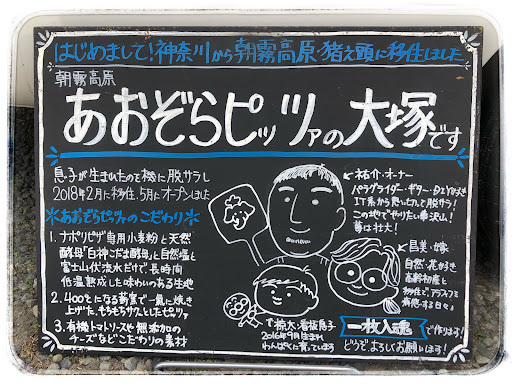 はじめまして！神奈川から朝霧高原・猪之頭に移住しました
朝霧高原
あおぞらピッツァの大塚です
息子が生まれたのを機に脱サラし
2018年2月に移住、5月にオープンしました
＊あおぞらピッツァのこだわり＊
1. ナポリピザ専用小麦粉と天然
酵母「白神こだま酵母」と自然塩と
富士山伏流水だけで長時間
低温熟成した味わいのある生地
2. 400℃になる薪窯で一気に焼き
上げた、もちもちサクッとしたピッツァ
3. 有機トマトソースや無添加の
チーズなどこだわりの素材
←祐介・オーナー
パラグライダー・ギター・DIY好き
IT系から思いたって脱サラ！
この地でやりたい事沢山！
夢は壮大！
・嫁
自然・花好き
高齢初産と
移住で、アラフィフを
痛感する日々♪
↑椋太・看板息子
2016年9月生まれ
わんぱくに育っています
一枚入魂で作ります！
どうぞ、よろしくお願いします！